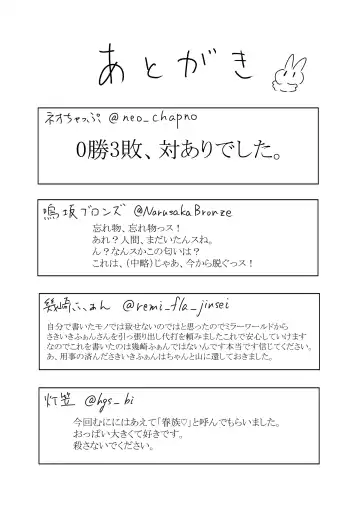 あとがき
ネオちゃっぷ @neo_chapno
0勝3敗、対ありでした。
鳴坂ブロンズ @NarusakaBronze
忘れ物、忘れ物っス！
あれ？人間、まだいたんスね。
ん？なんスかこの匂いは？
これは、（中略）じゃあ、今から脱ぐっス！
幾崎ふぁん @remi_fla_jinsei
自分で書いたモノでは致せないのではと思ったのでミラーワールドから
さきいきふぁんさんを引っ張り出し代打を頼みましたこれで安心していけます
なのでこれを書いたのは幾崎ふぁんではないんです本当です信じてください。
あ、用事の済んださきいきふぁんはちゃんと山に還しておきました。
灯笠 @hgs_hi
今回むににはあえて「春族♡」と呼んでもらいました。
おっぱい大きくて好きです。
殺さないでください。